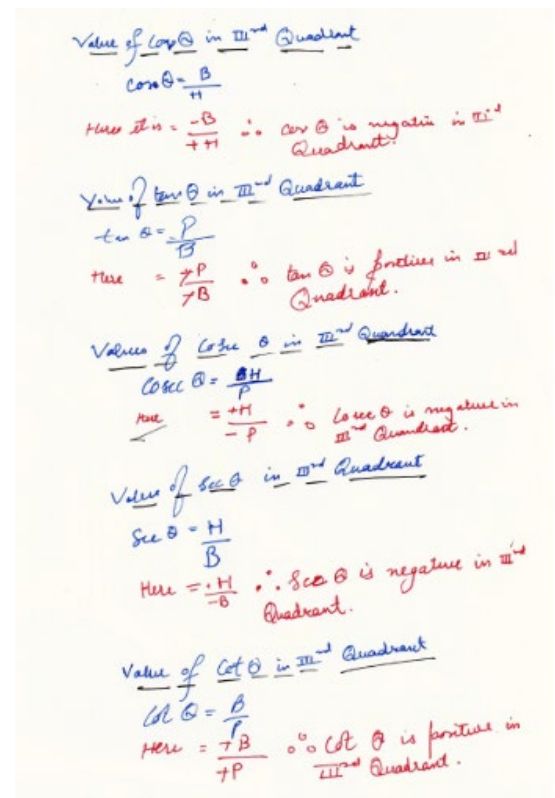 Value of Cos θ in III nd Quadrant
Cos θ = B/H
Here it is = -B/+H ∴ cos θ is negative in III rd Quadrant.
Value of tan θ in III nd Quadrant
tan θ = P/B
Here = +P/+B ∴ tan θ is positive in III nd
Quadrant.
Values of Cosec θ in III nd Quandrant
Cosec θ = H/P
Here = +H/-P ∴ Cosec θ is negative in
III nd Quandrant.
Value of Sec θ in III nd Quadrant
Sec θ = H/B
Here = +H/-B ∴ Sec θ is negative in III rd
Quadrant.
Value of Cot θ in III nd Quadrant
Cot θ = B/P
Here = +B/+P ∴ Cot θ is positive in
III nd Quadrant.